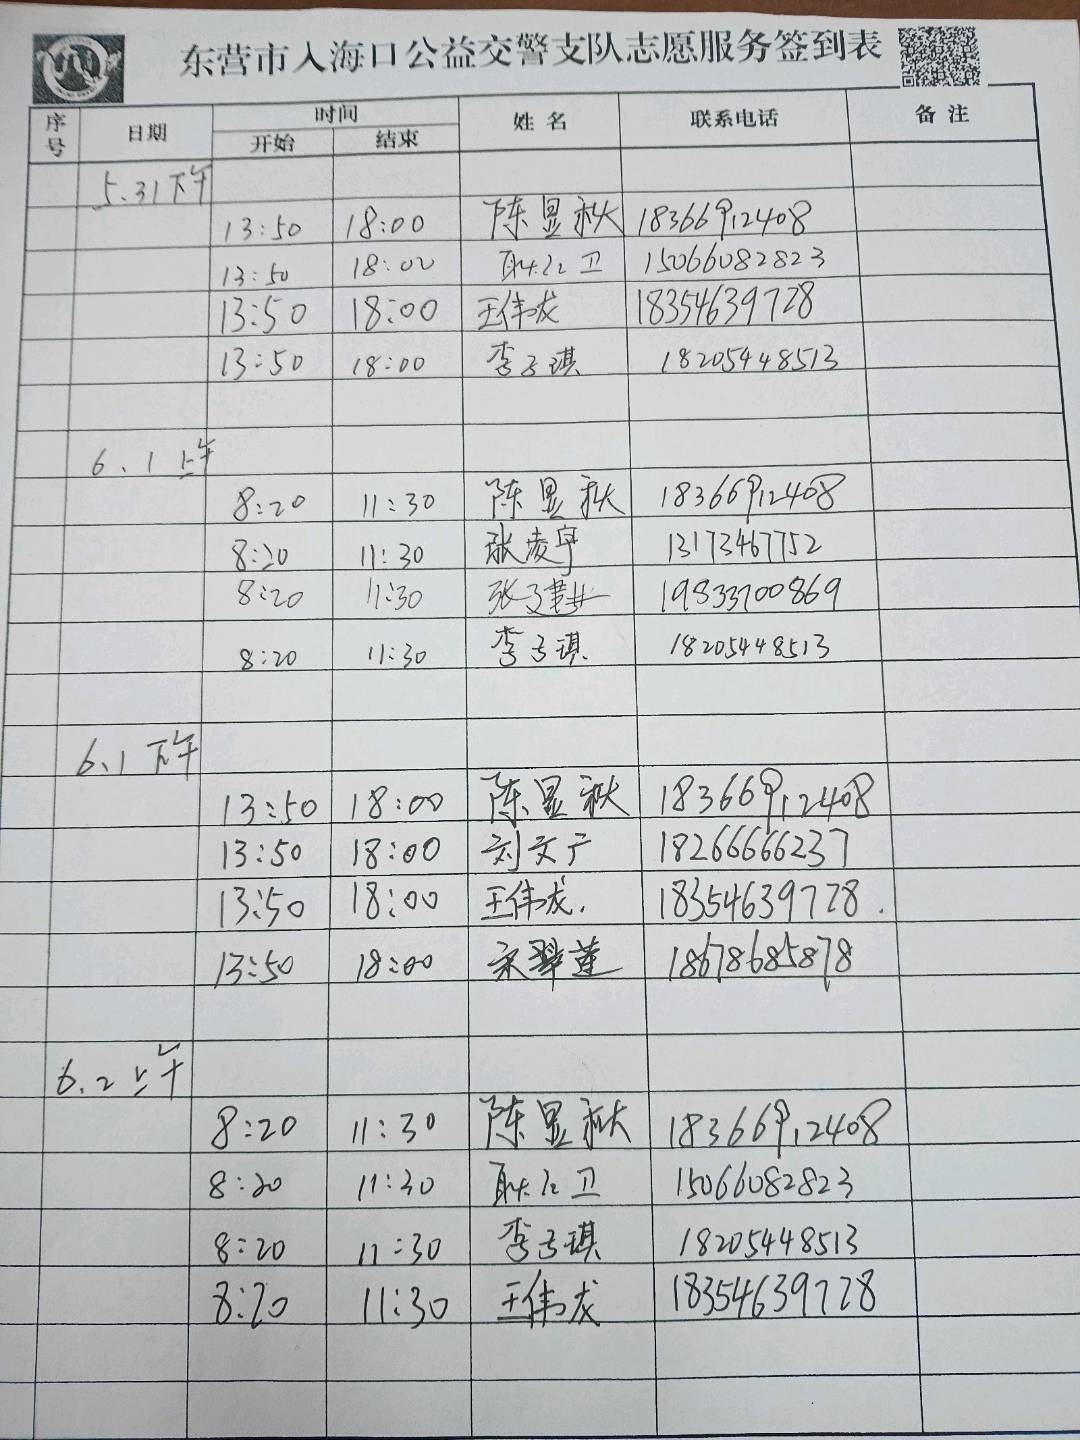 东营市入海口公益交警支队志愿服务签到表
序号 日期 时间 姓名 联系电话 备注
开始 结束
5.31下午
13:50 18:00 陈显秋 18366912408
13:50 18:00 耿红卫 15066082823
13:50 18:00 王伟成 18354639728
13:50 18:00 李子琪 18205448513
6.1上午
8:20 11:30 陈显秋 18366912408
8:20 11:30 张凌宇 13173467752
8:20 11:30 张 19833700869
8:20 11:30 李子琪 18205448513
6.1下午
13:50 18:00 陈显秋 18366912408
13:50 18:00 刘文广 18266666237
13:50 18:00 王伟成. 18354639728.
13:50 18:00 宋翠莲 18678685878
6.2上午
8:20 11:30 陈显秋 18366912408
8:20 11:30 耿红卫 15066082823
8:20 11:30 李子琪 18205448513
8:20 11:30 王伟成 18354639728